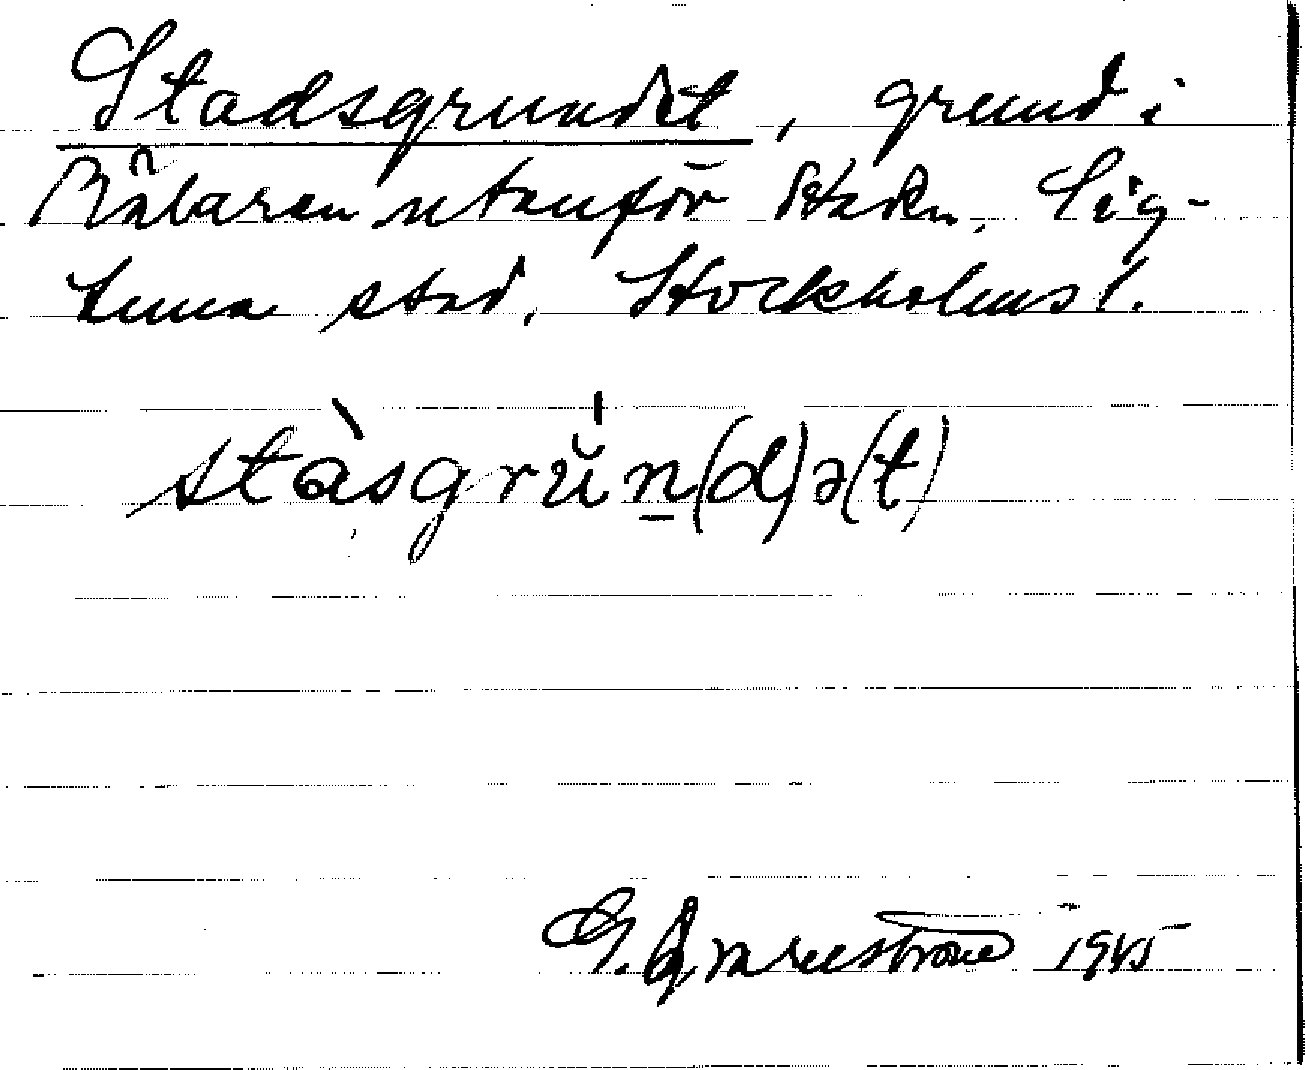 Stadsgrundet, grund i
Mälaren utanför staden, Sig-
tuna stad, Stockholms l.
stàsgrŭ́n̲(d)ə(t)
G. 1945